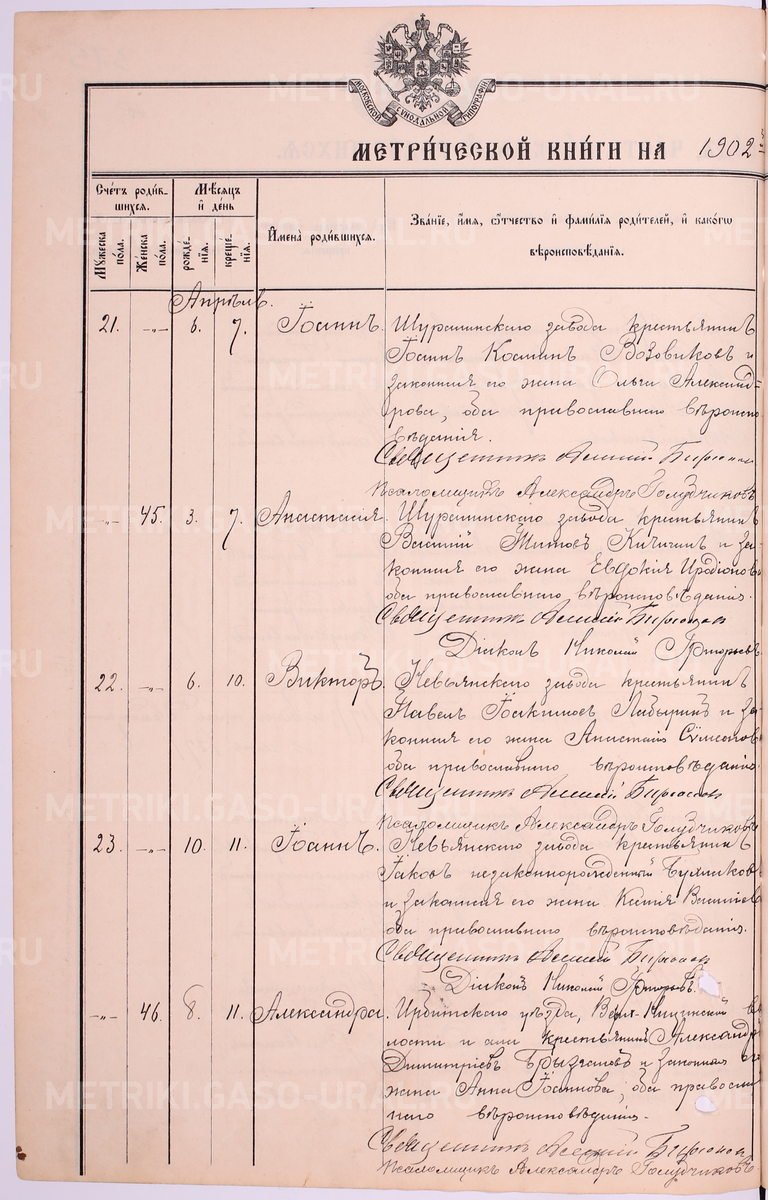 МОСКОВСКОЙ СѴНОДАЛЬНОЙ ТИПОГРАФІИ
МЕТРИ́ЧЕСКОЙ КНИ́ГИ НА 1902
Сче́тъ роди́в-
шихся.
Мѣ́сяцъ
и҆ де́нь
Мꙋ́жеска
по́ла.
Же́нска
по́ла.
рожде́-
нїѧ.
креще́-
нїѧ.
И҆мена̀ роди́вшихся.
Зва́нїе, и҆́мѧ, ѻ҆́тчество и҆ фами́лїѧ роди́телей, и҆ како́гѡ
вѣроисповѣ́данїѧ.
Апрѣль.
21. -„- 6. 7. Іоаннъ. Шуралинскаго завода крестьянинъ
Іоаннъ Косминъ Возовиковъ и
законная его жена Ольга Александ-
рова, оба православнаго вѣроиспо-
вѣданія.
Священникъ Алексій Бирюковъ
Псаломщикъ Александръ Голубчиковъ
-„- 45. 3. 7. Анастасія. Шуралинскаго завода крестьянинъ
Василій Титовъ Кичигинъ и за-
конная его жена Евдокія Иродіонова
оба православнаго вѣроисповѣданія.
Священникъ Алексій Бирюковъ
Діаконъ Николай Григорьевъ
22. -„- 6. 10. Викторъ. Невьянскаго завода крестьянинъ
Павелъ Іоакимовъ и за-
конная его жена Анастасія
оба православнаго вѣроисповѣданія.
Священникъ Алексій Бирюковъ
Псаломщикъ Александръ Голубчиковъ
23. -„- 10. 11. Іоаннъ. Невьянскаго завода крестьянинъ
Іаковъ незаконнорожденный
и законная его жена Ксенія Васильева
оба православнаго вѣроисповѣданія.
Священникъ Алексій Бирюковъ
Діаконъ Николай Григорьевъ.
-„- 46. 8. 11. Александра. Ирбитскаго уѣзда, Верх-Ницинской во-
лости и села крестьянинъ Александръ
Димитріевъ и законная его
жена Анна Іоаннова, оба православ-
наго вѣроисповѣданія.
Священникъ Алексій Бирюковъ
Псаломщикъ Александръ Голубчиковъ
METRIKI.GASO-URAL.RU